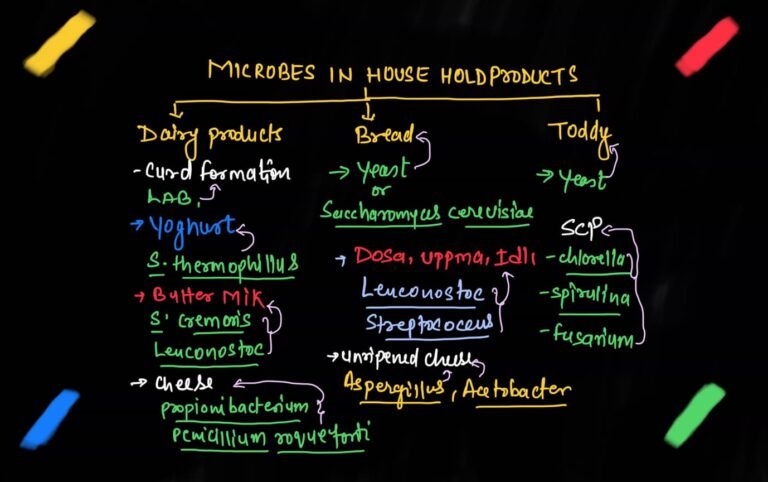 MICROBES IN HOUSE HOLD PRODUCTS
Dairy products
- Curd formation
LAB,
→ Yoghurt
S. thermophillus
→ Butter Mik
S' Cremoris
Leuconostoc
→ cheese
propionibacterium
penicillium roqueforti
Bread
→ Yeast
or
Saccharomyces cerevisiae
→ Dosa, uppma, Idli
Leuconostoc
Streptococcus
→ unripened cheese
Aspergillus, Acetobacter
Toddy
→ yeast
SCP
- chlorella
- spirulina
- fusarium